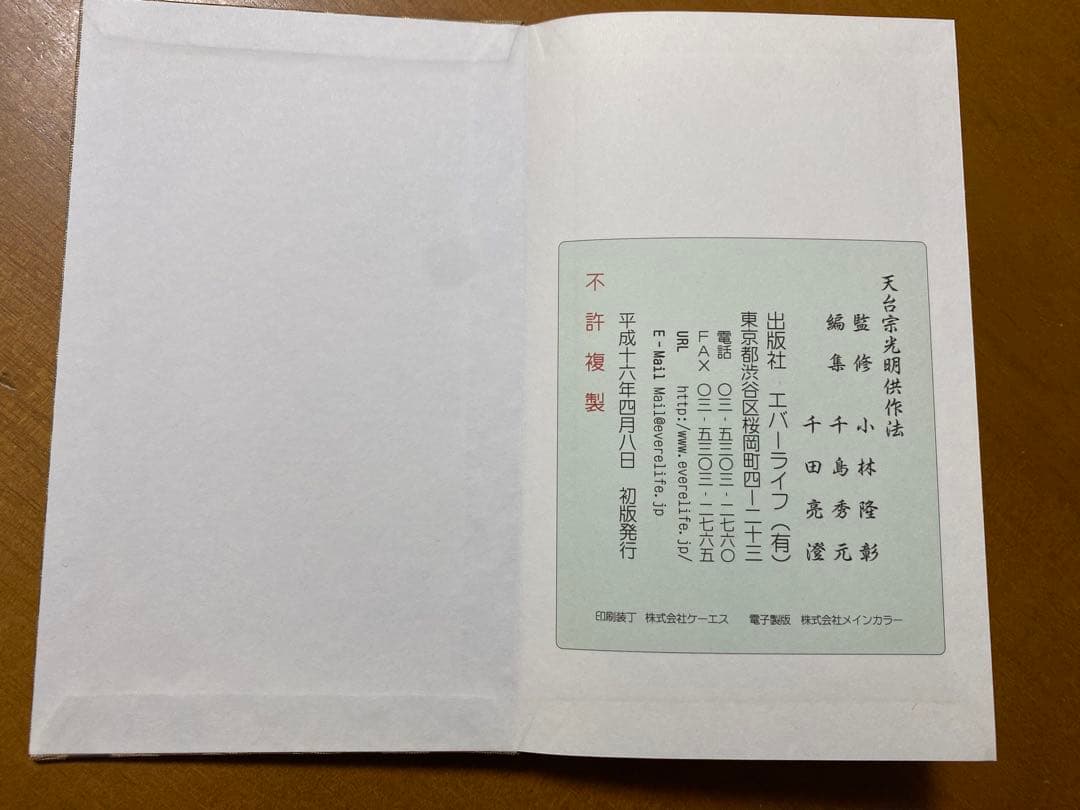 天台宗光明供作法
監修　小林隆彰
編集　千島秀元
千田亮澄
出版社　エバーライフ（有）
東京都渋谷区桜岡町四ー二十三
電話　〇三-五三〇三-二七六〇
ＦＡＸ　〇三-五三〇三-二七六五
URL　http:/www.everelife.jp/
E-Mail Mail@everelife.jp
平成十六年四月八日　初版発行
不許複製
印刷装丁　株式会社ケーエス　電子製版　株式会社メインカラー